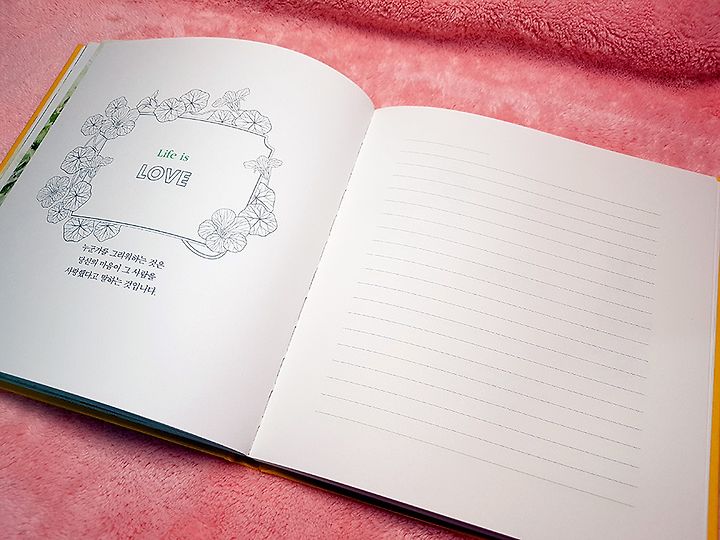 Life is
LOVE
누군가를 그리워하는 것은
당신의 마음이 그 사람을
사랑했다고 말하는 것입니다.